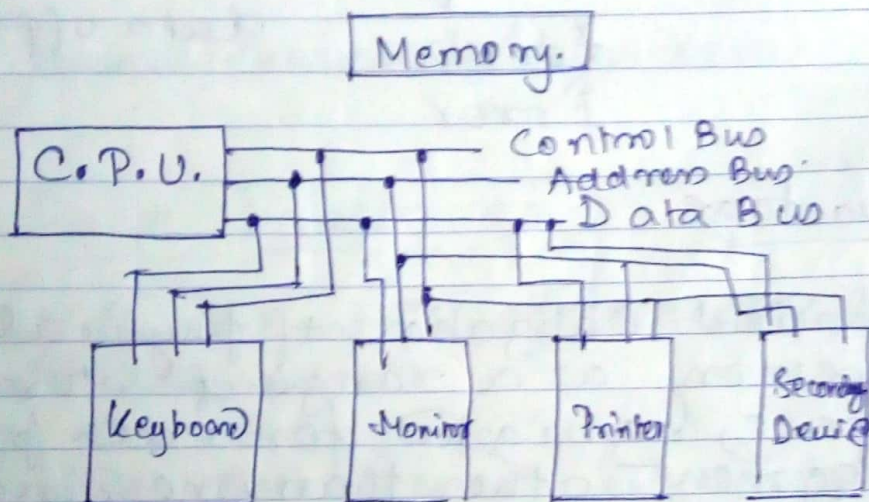 Memory.
C.P.U.
Control Bus
Address Bus
Data Bus
Keyboard
Monitor
Printer
Device